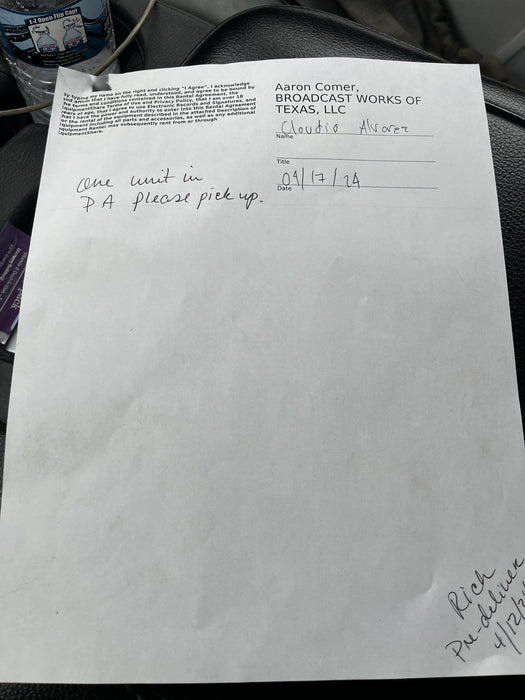 1-2 Open Flip Cap!
By typing my name on the right and clicking "I Agree", I acknowledge
and affirm that I have fully read, understood, and agree to be bound by
the Terms and Conditions contained in this Rental Agreement, the
EquipmentShare Terms of Use and Privacy Policy, that I am over 18
years of age, that I agree to use Electronic Records and Signatures, and
that I have the power and authority to enter into this Rental Agreement
for the rental of the equipment described in the attached Description of
Equipment including all parts and accessories, as well as any additional
equipment Renter may subsequently rent from or through
EquipmentShare.
Aaron Comer,
BROADCAST WORKS OF
TEXAS, LLC
Claudio Alvarez
Name
Title
04/17/24
Date
one unit in
PA please pick up.
Rich
Pre-deliver
4/12/2